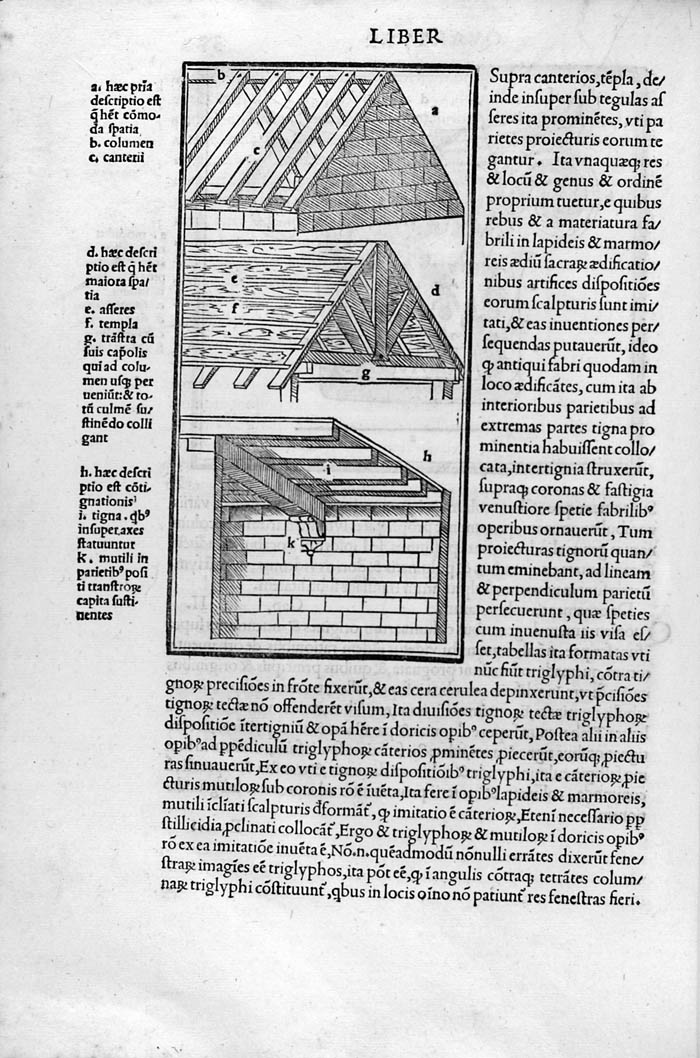 LIBER
a. hæc pria
descriptio est
q̃ hét cōmo-
da spatia
b. columen
c. canterii
d. hæc descri
ptio est q̃ hét
maiora spa/
tia
e. asseres
f. templa
g. trāstra cū
suis cap̄olis
qui ad colu-
men usq; per
ueniūt: & to-
tū culmē su/
stinēdo colli
gant
h. hæc descri
ptio est cōti-
gnationis
i. tigna. qbꝰ
insuper axes
statuuntur
k. mutili in
parietibꝰ posi
ti transtroꝝ
capita susti-
nentes
b
a
c
e
f
d
g
h
i
k
Supra canterios, tēpla, de/
inde insuper sub tegulas as
seres ita prominētes, vti pa
rietes proiecturis eorum te
gantur. Ita vnaquæq; res
& locū & genus & ordinē
proprium tuetur, e quibus
rebus & a materiatura fa/
brili in lapideis & marmo/
reis ædiū sacraꝝ ædificatio/
nibus artifices dispositiões
eorum scalpturis sunt imi/
tati, & eas inuentiones per/
sequendas putauerūt, ideo
q antiqui fabri quodam in
loco ædificātes, cum ita ab
interioribus parietibus ad
extremas partes tigna pro
minentia habuissent collo/
cata, intertignia struxerūt,
supraq; coronas & fastigia
venustiore spetie fabrilibꝰ
operibus ornauerūt, Tum
proiecturas tignorū quan/
tum eminebant, ad lineam
& perpendiculum parietū
persecuerunt, quæ species
cum inuenusta iis visa es/
set, tabellas ita formatas vti
nūc fiūt triglyphi, cōtra ti/
gnoꝝ precisiōes in frōte fixerūt, & eas cera cerulea depinxerunt, vt p̄cisiōes
tignoꝝ tectæ nō offenderēt visum, Ita diuisiōes tignoꝝ tectæ triglyphoꝝ
dispositiōe ītertigniū & opā hēre ī doricis opibꝰ ceperūt, Postea alii in aliis
opibꝰ ad ppēdiculū triglyphoꝝ cāterios pminētes, piecerūt, eorūq; piectu
ras sinuauerūt, Ex eo vti e tignoꝝ dispositiōibꝰ triglyphi, ita e cāterioꝝ, pie
cturis mutiloꝝ sub coronis rō ē īuēta, Ita fere ī opibꝰ lapideis & marmoreis,
mutili īclīati scalpturis d̄formāt, q imitatio ē cāterioꝝ, Etenī necessario pp
stillicidia, pclinati collocāt, Ergo & triglyphoꝝ & mutiloꝝ ī doricis opibꝰ
rō ex ea imitatiōe inuēta ē, Nō. n. quēadmodū nōnulli errātes dixerūt fene/
straꝝ imagīes eē triglyphos, ita pōt eē, q ī angulis cōtraq; tetrātes colum/
naꝝ triglyphi cōstituunt, qbus in locis oīno nō patiunt res fenestras fieri.